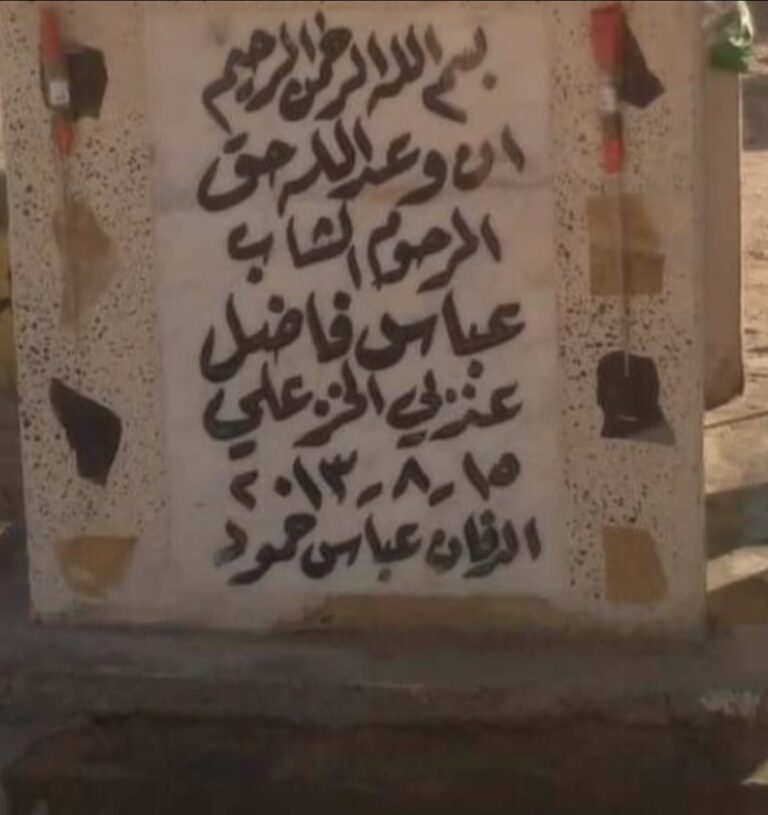 بسم الله الرحمن الرحيم
ان وعد الله حق
المرحوم الشاب
عباس فاضل
عنزي الخزعلي
١٥-٨-٢٠١٣
الدفان عباس حمود